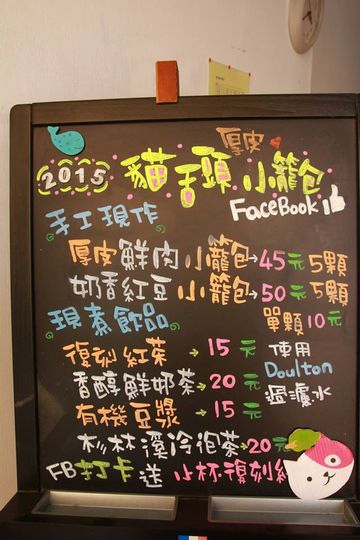 厚皮
2015 貓手頭 小籠包
FaceBook
手工現作
厚皮鮮肉小籠包→45元 5顆
奶香紅豆小籠包→50元 5顆
單顆10元
現煮飲品
復刻紅茶→15元
香醇鮮奶茶→20元
有機豆漿→15元
杉林溪冷泡茶→20元
使用
Doulton
過濾水
FB打卡送小杯復刻紅